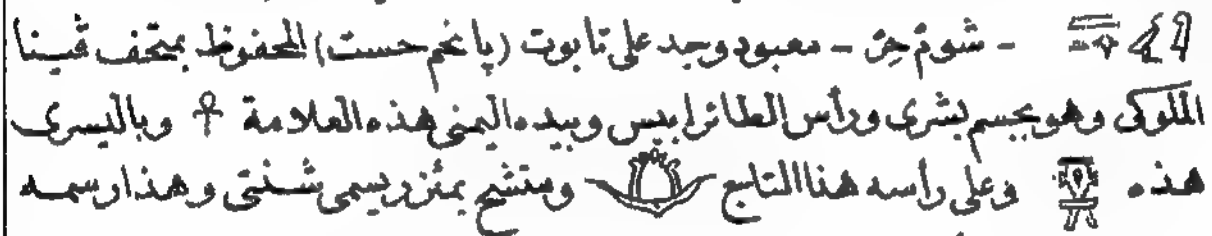 - شومّ حِن - معبود وجد على تابوت (پا نخم حست) المحفوظ بمتحف ڤينا
الملوكى وهو بجسم بشرى ورأس الطائر ابيس وبيده اليمنى هذه العلامة ☥ وباليسرى
هذه وعلى رأسه هذا التاج ومتشح بمئزر يسمى شنتى وهذا رسمه